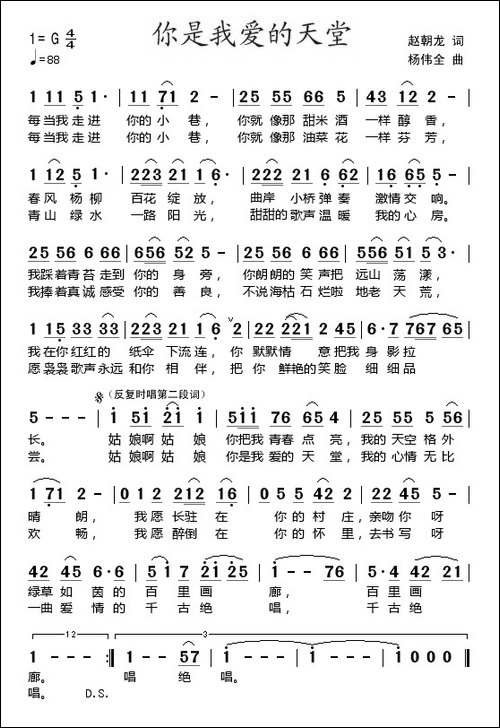 你是我爱的天堂
1= G 4/4
赵朝龙 词
♩=88
杨伟全 曲
1 11 5 1· | 11 71 2 - | 25 55 66 5 | 43 12 2 - |
每当我走进 你的小 巷, 你就 像那 甜米 酒 一样 醇 香,
每当我走进 你的小 巷, 你就 像那 油菜 花 一样 芬 芳,
1 12 5 1· | 223 21 6 - | 222 21 66 2 | 22 16 5 - |
春风 杨柳 百花 绽 放, 曲岸 小桥弹奏 激情交 响。
青山 绿水 一路 阳光, 甜甜的歌声温暖 我的心 房。
25 56 6 66 | 656 52 5 - | 25 56 6 66 | 55 51 5 3· |
我踩着青苔走到 你的 身 旁, 你朗朗的 笑 声把 远山 荡 漾,
我捧着真诚感受 你的 善 良, 不说海枯石 烂啦 地老 天 荒,
1 15 33 33 | 223 21 16 2 | 22 221 2 45 | 6 7 767 65 |
我在你红红的 纸伞 下流连, 你 默默情 意把我 身 影拉
愿袅袅歌声永远 和你 相 伴, 把你 鲜艳的笑脸 细 细品
5 - - - | 1 51 21 1 | 511 76 65 4 | 25 55 5 56 |
(反复时唱第二段词)
长。 姑 娘啊 姑 娘 你把我 青春 点 亮, 我的 天空 格外
尝。 姑 娘啊 姑 娘 你是我 爱的 天 堂, 我的 心情 无比
1 71 2 - | 0 12 2212 16 | 0 55 42 05 | 22 45 5 |
晴 朗, 我愿 长驻 在 你的 村 庄, 亲吻你 呀
欢 畅, 我愿 醉倒 在 你的 怀 里, 去书写 呀
42 45 6 6 | 5 17 21 25 | 1 - - - | 5· 4 42 21 |
绿草 如 茵的 百 里画 廊, 百 里画
一曲 爱 情的 千 古绝 唱, 千 古绝
12
3
1 - - - :‖ 1 - - 57 | 1 - - - | 1 - - - | 1000 ‖
廊。 唱 绝 唱。
唱。 D.S.